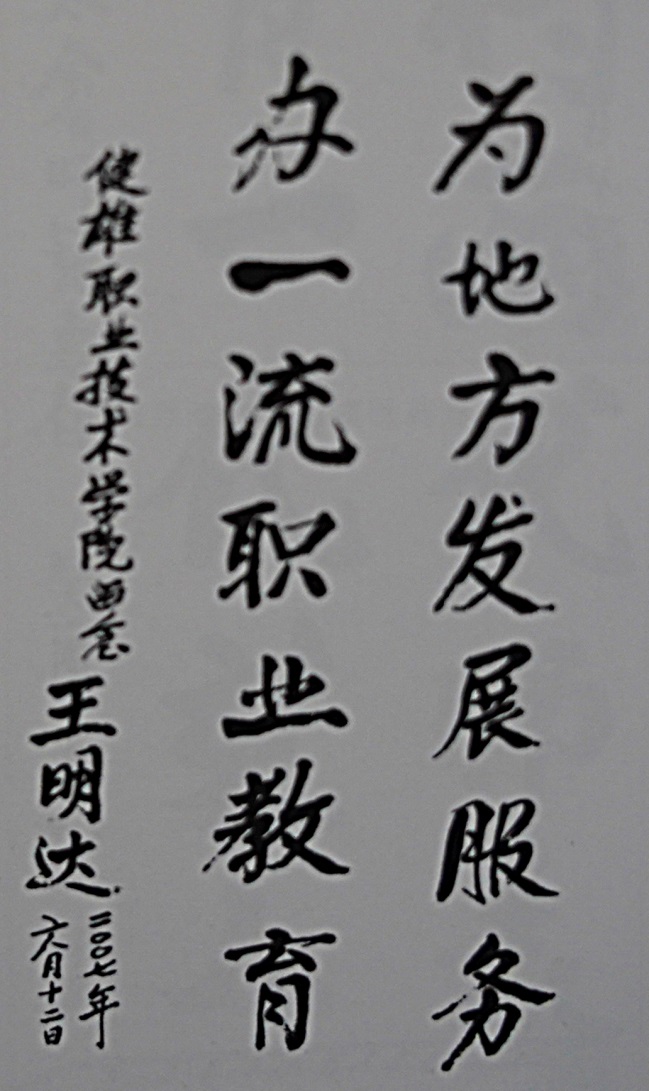 为地方发展服务
办一流职业教育
健雄职业技术学院留念
王明达
二〇〇七年
六月十二日